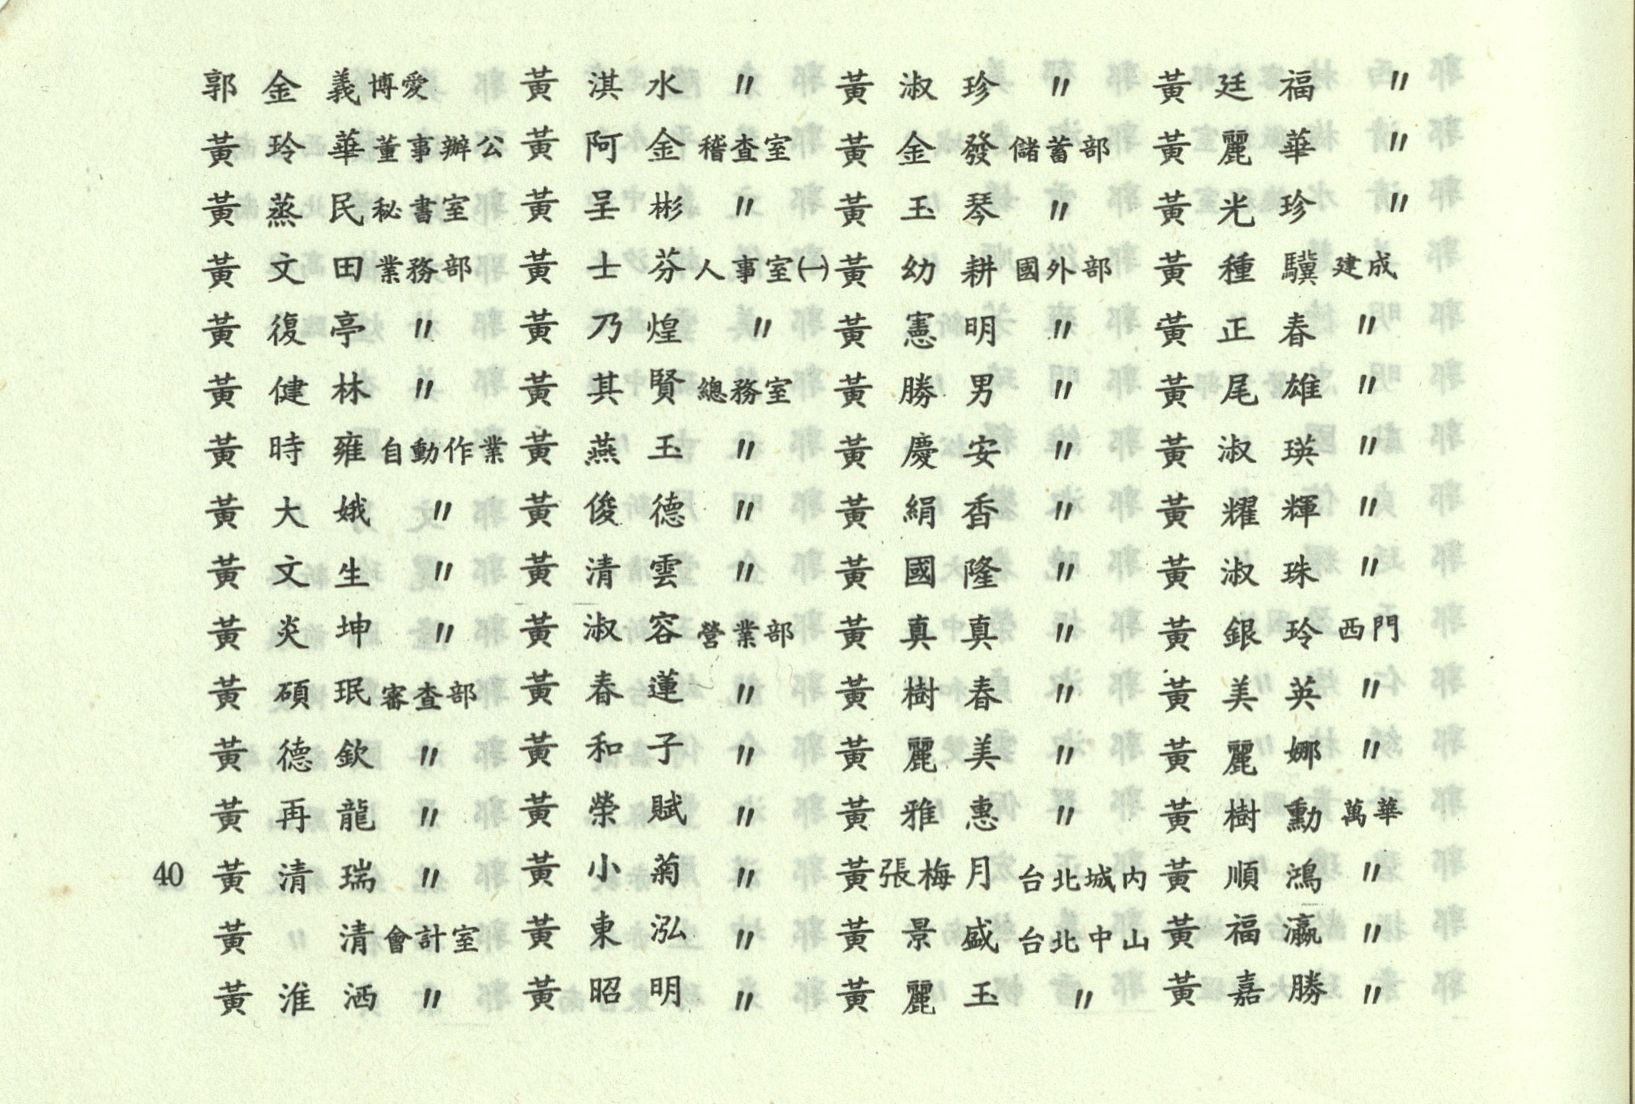 郭金義 博愛
黃玲華 董事辦公
黃蒸民 秘書室
黃文田 業務部
黃復亭 〃
黃健林 〃
黃時雍 自動作業
黃大娥 〃
黃文生 〃
黃炎坤 〃
黃碩珉 審查部
黃德欽 〃
黃再龍 〃
黃清瑞 〃
黃清 會計室
黃淮洒 〃
黃淇水 〃
黃阿金 稽查室
黃呈彬 〃
黃士芬 人事室㈠
黃乃煌 〃
黃其賢 總務室
黃燕玉 〃
黃俊德 〃
黃清雲 〃
黃淑容 營業部
黃春蓮 〃
黃和子 〃
黃榮賦 〃
黃小菊 〃
黃東泓 〃
黃昭明 〃
黃淑珍 〃
黃金發 儲蓄部
黃玉琴 〃
黃幼耕 國外部
黃憲明 〃
黃勝男 〃
黃慶安 〃
黃絹香 〃
黃國隆 〃
黃真真 〃
黃樹春 〃
黃麗美 〃
黃雅惠 〃
黃張梅月 台北城內
黃景盛 台北中山
黃麗玉 〃
黃廷福 〃
黃麗華 〃
黃光珍 〃
黃種驥 建成
黃正春 〃
黃尾雄 〃
黃淑瑛 〃
黃耀輝 〃
黃淑珠 〃
黃銀玲 西門
黃美英 〃
黃麗娜 〃
黃樹勳 萬華
黃順鴻 〃
黃福瀛 〃
黃嘉勝 〃
40